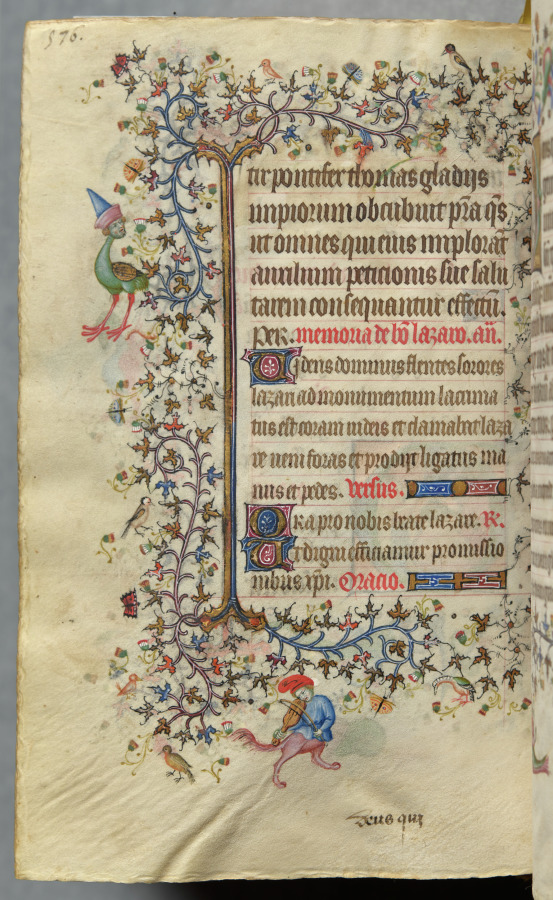 576.
tir pontifex thomas gladijs
impiorum obcubuit p̄ra q̄s
ut omnes qui eius implorāt
auxilium peticionis sue salu
tarem consequantur effectū.
Per. memoria de bō lazaro. an̄.
Videns dominus flentes sorores
lazari ad monumentum lacrima
tus est coram iudeis et clamabat laza
re ueni foras et prodijt ligatus ma
nus et pedes. Versus.
Ora pro nobis beate lazare. R.
Ut digni efficiamur promissio
nibus xp̄i. Oracio.
deus qui